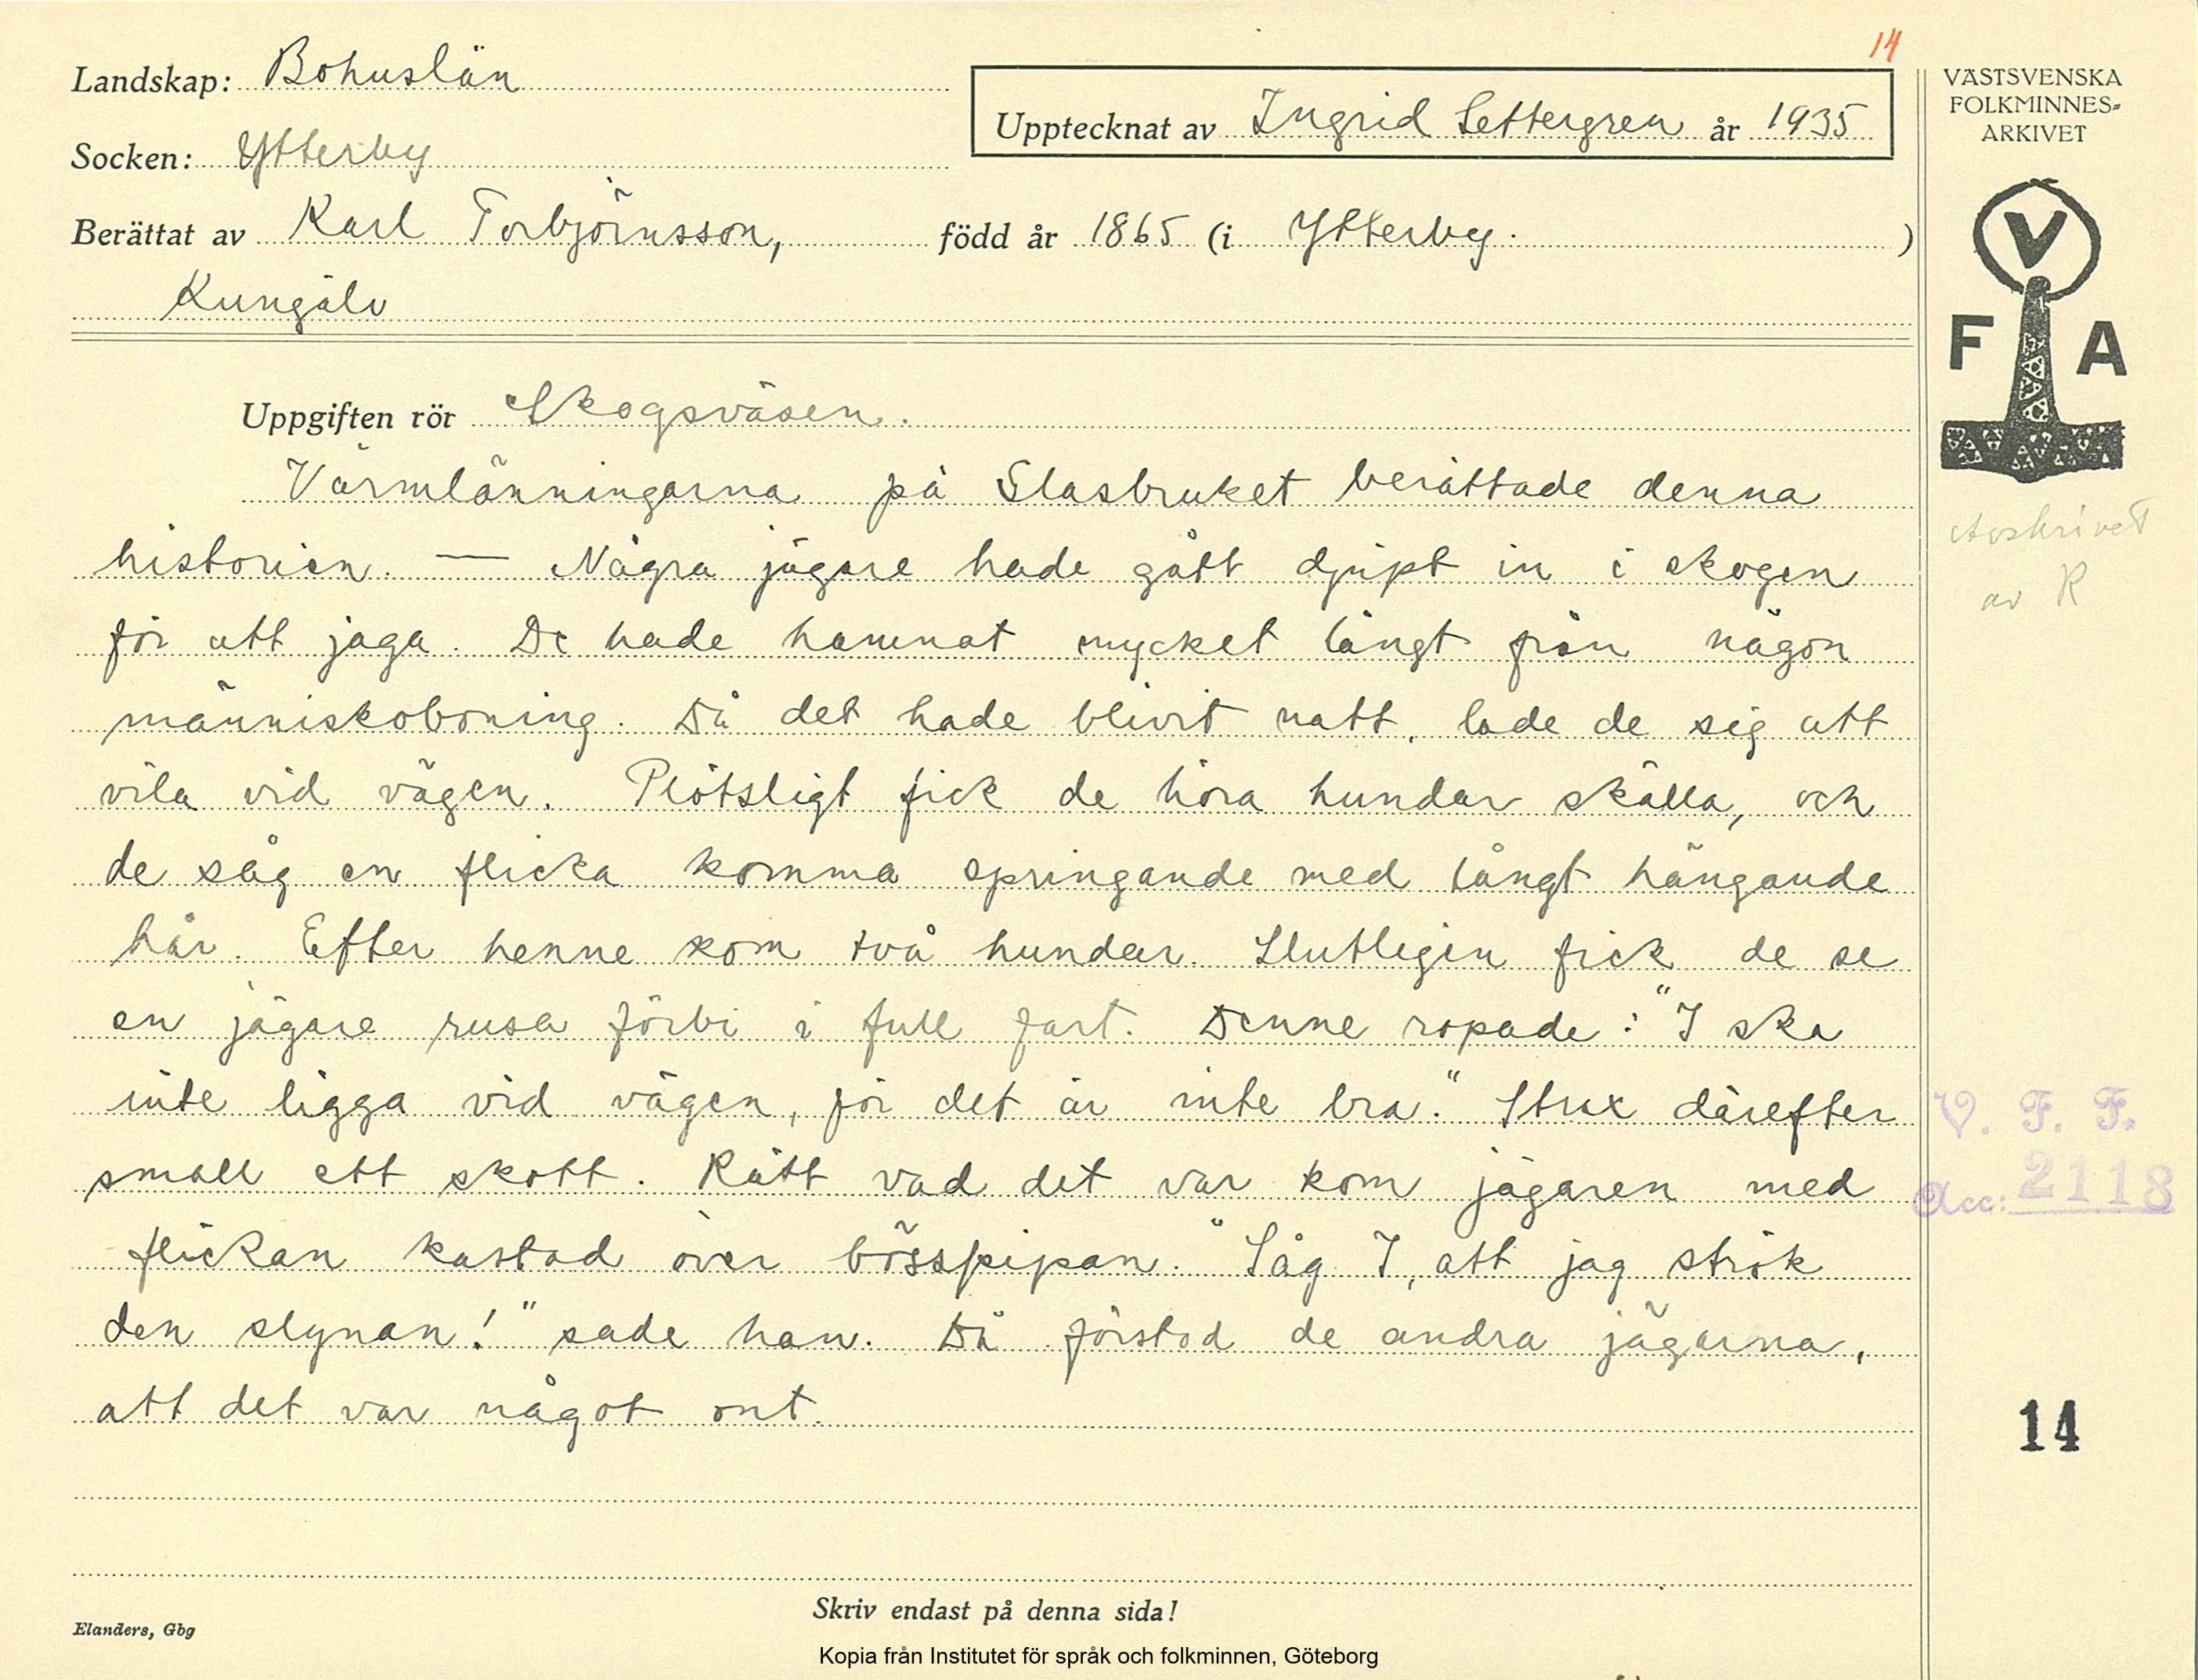 14
Landskap: Bohuslän
Upptecknat av Ingrid Settergren år 1935
Socken: Ytterby
Berättat av Karl Torbjörnsson, född år 1865 (i Ytterby. )
Kungälv
VÄSTSVENSKA
FOLKMINNES-
ARKIVET
V
F A
Uppgiften rör Skogsväsen.
Värmlänningarna på Slasbruket berättade denna
historien. — Några jägare hade gått djupt in i skogen
för att jaga. De hade hamnat mycket långt från någon
människoboning. Då det hade blivit natt, lade de sig att
vila vid vägen. Plötsligt fick de höra hundar skälla, och
de såg en flicka komma springande med långt hängande
hår. Efter henne kom två hundar. Slutligen fick de se
en jägare rusa förbi i full fart. Denne ropade: "I ska
inte ligga vid vägen, för det är inte bra." Strax därefter
small ett skott. Rätt vad det var kom jägaren med
flickan kastad över bösspipan. "Såg I, att jag strök
den slynan!" sade han. Då förstod de andra jägarna,
att det var något ont.
Avskrivet
av R
V. F. F.
Acc: 2118
14
Skriv endast på denna sida!
Elanders, Gbg
Kopia från Institutet för språk och folkminnen, Göteborg